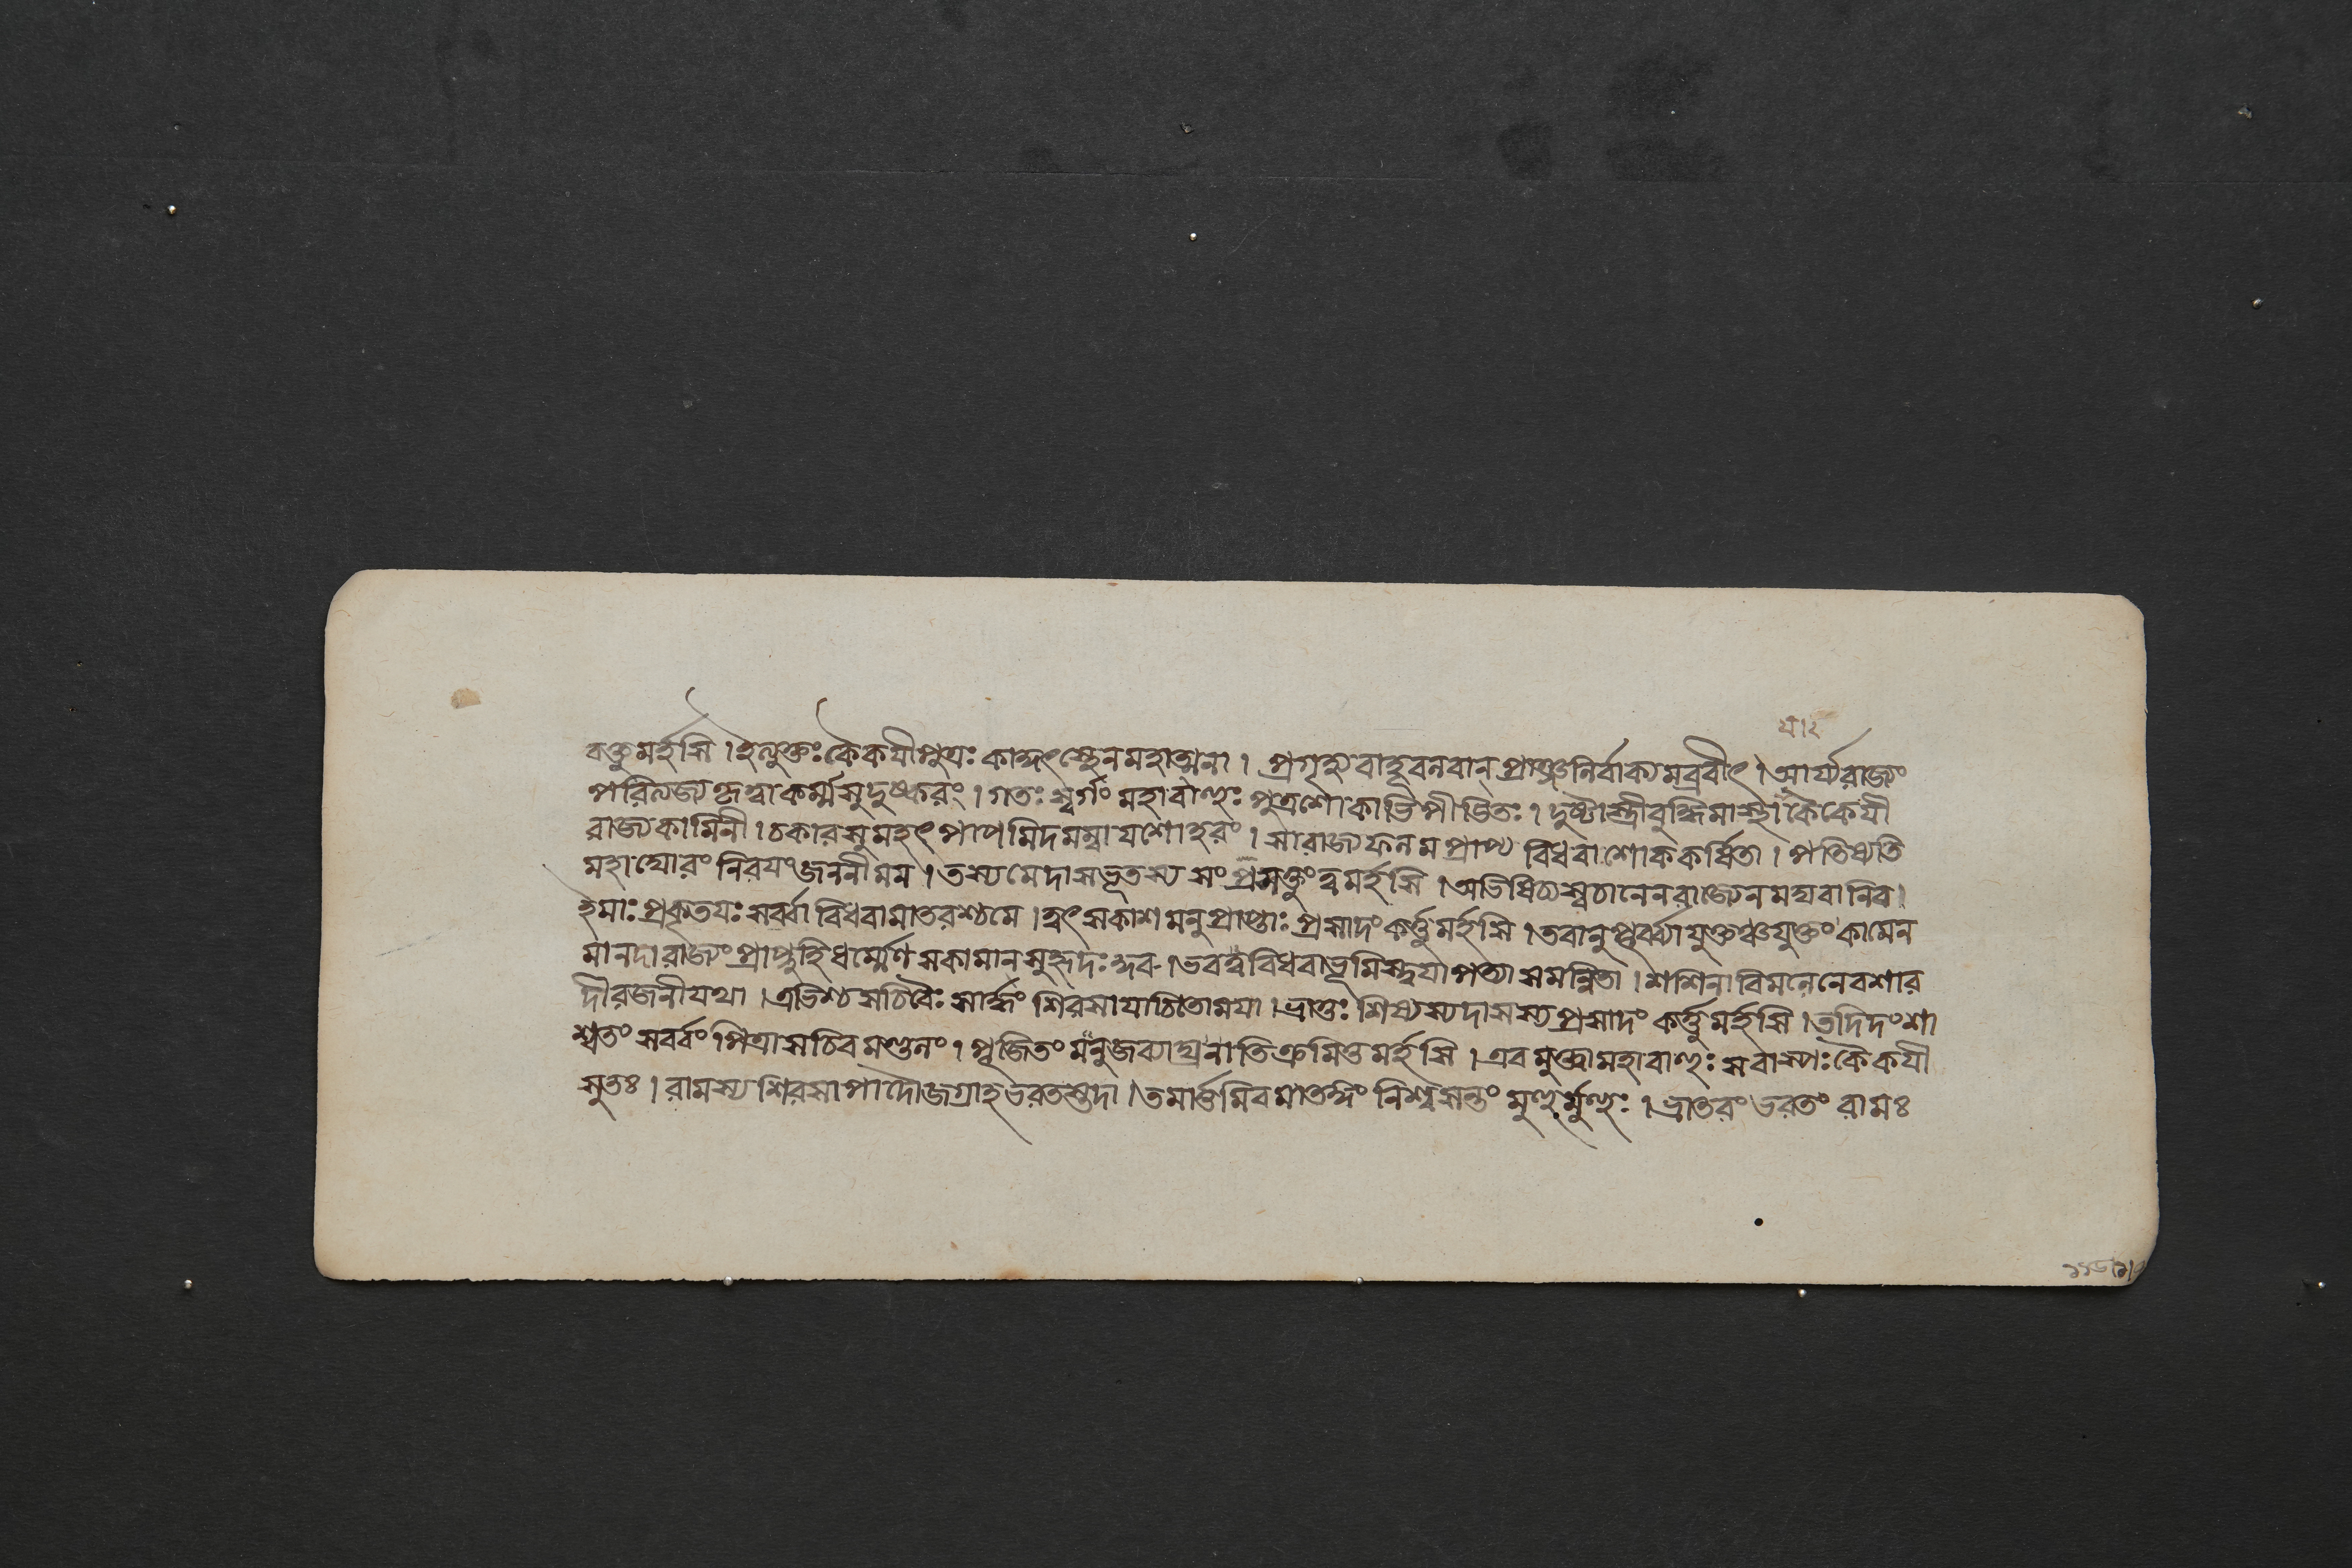 বক্তুমর্হসি।ইত্যুক্তঃকৈকয়ীপুত্রঃকাকুৎস্থেনমহাত্মনা। প্রগৃহ্যবাহূবলবান্প্রাঞ্জলির্বাক্যমব্রবীৎ।আর্য্যরাজ্যং
পরিত্যজ্যকৃত্বাকর্ম্মসুদুষ্করং।গতঃস্বর্গংমহাবাহুঃপুত্রশোকাভিপীডিতঃ।দুষ্টাস্ত্রীবুদ্ধিমাস্থাকৈকেযী
রাজ্যকামিনী।চকারসুমহৎপাপমিদমম্বাযশোহরং।সারাজ্যফলমপ্রাপ্য বিধবাশোককর্ষিতা।পতিষ্যতি
মহাঘোরংনিরযংজননীমম।তস্যমেদাসভূতস্যসংপ্রসক্তুংত্বমর্হসি।অভিষিচ্যস্বচানেনরাজ্যেনমঘবানিব।
ইমাঃপ্রকৃতযঃসর্ব্বাবিধবামাতরশ্চমে।ত্বৎসকাশমনুপ্রাপ্তাঃপ্রসাদংকর্ত্তুমর্হসি।তবানুপূর্ব্ব্যাযুক্তঞ্চযুক্তংকামেন
মানদারাজ্যংপ্রাপ্নুহিধর্ম্মেণসকামানসুহৃদঃকৃব।ভবত্ববিধবাভূমিস্ত্বযাপত্যাসমন্বিতা।শশিনাবিমলেনেবশার
দীরজনীযথা।এভিশ্চসচিবৈঃসার্দ্ধং শিরসাযাচিতোময়া।ভ্রাতুঃশিষ্যস্যদাসস্যপ্রসাদং কর্ত্তুমর্হসি।তদিদংশা
শ্বতংসর্ব্বংপিত্র্যাসচিবমণ্ডলং।পূজিতংমনুজব্যাঘ্রনাতিক্রমিতুমর্হসি।এবমুক্ত্বামহাবাহুঃসবাস্পঃকৈকযী
সুতঃ।রামস্যশিরসাপাদৌজগ্রাহভরতস্তদা।তমার্ত্তমিবমাতঙ্গংনিশ্বসন্তংমুহুর্মুহুঃ।ভ্রাতরংভরতংরামঃ